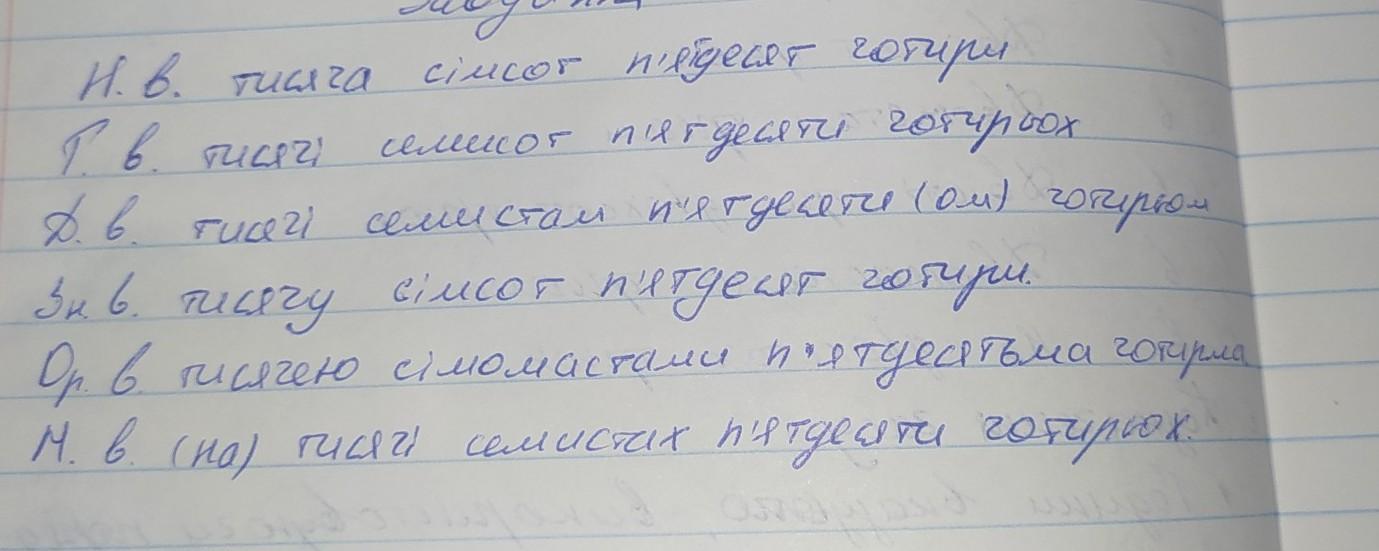 Н. в. тисяча сімсот п'ятдесят чотири
Г. в. тисячі семисот п'ятдесяти чотирьох
Д. в. тисячі семистам п'ятдесяти (ом) чотирьом
Зн. в. тисячу сімсот п'ятдесят чотири.
Ор. в. тисячею сімомастами п'ятдесятьма чотирма
М. в. (на) тисячі семистах п'ятдесяти чотирьох.